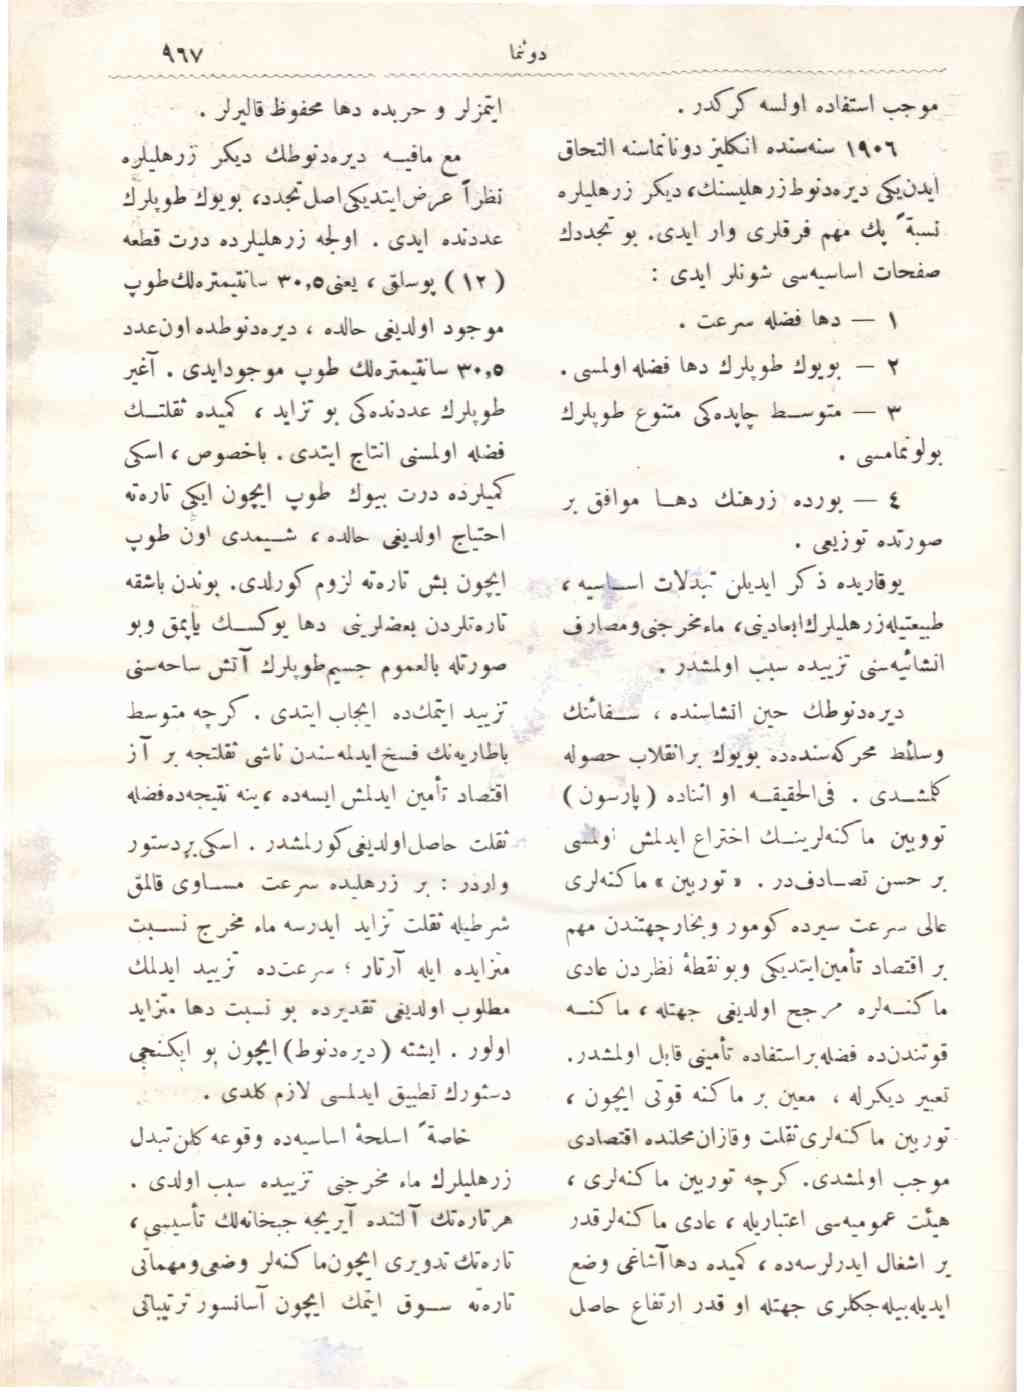 دوننما
٩٦٧
موجب استفاده اولسه كركدر .
١٩٠٦ سنه‌سنده انكليز دونانماسنه التحاق
ايدن‌يكى ديره‌دنوط زرهليسنك، ديكر زرهليلره
نسبةً پك مهم فرقلرى وار ايدى. بو تجددك
صفحات اساسيه‌سى شونلر ايدى :
١ — دها فضله سرعت .
٢ — بويوك طوپلرك دها فضله اولمسى .
٣ — متوسط چاپده‌كى متنوع طوپلرك
بولونمامسى .
٤ — بورده زرهنك دها موافق بر
صورتده توزيعى .
يوقاريده ذكر ايديلن تبدلات اساسيه ،
طبيعتيله زرهليلرك ابعادينى، ماء مخرجنى و مصارف
انشائيه‌سنى تزييده سبب اولمشدر .
ديره‌دنوطك حين انشاسنده ، سفائنك
وسائط محركه‌سنده‌ده بويوك بر انقلاب حصوله
كلمشدى . فى‌الحقيقه او اثناده (پارسون)
توربين ماكنه‌لرينك اختراع ايدلمش اولمسى
بر حسن تصادف‌در . « توربين » ماكنه‌لرى
عالى سرعت سيرده كومور و بخار جهتندن مهم
بر اقتصاد تأمين‌ايتديكى و بو نقطهٔ نظردن عادى
ماكنه‌لره مرجح اولديغى جهتله ، ماكنه
قوتندن‌ده فضله بر استفاده تأمينى قابل اولمشدر.
تعبير ديكرله ، معين بر ماكنه قوتى ايچون ،
توربين ماكنه‌لرى ثقلت و قازان محلنده اقتصادى
موجب اولمشدى. كرچه توربين ماكنه‌لرى ،
هيئت عموميه‌سى اعتباريله ، عادى ماكنه‌لر قدر
ير اشغال ايدرلرسه‌ده ، كميده دها آشاغى وضع
ايديله‌بيله‌جكلرى جهتله او قدر ارتفاع حاصل
ايتمزلر و حربده دها محفوظ قاليرلر .
مع مافيه ديره‌دنوطك ديكر زرهليلره
نظراً عرض‌ايتديكى اصل تجدد، بويوك طوپلرك
عددنده ايدى . اولجه زرهليلرده درت قطعه
(١٢) پوسلق ، يعنى ٣٠,٥ سانتيمتره‌لك طوپ
موجود اولديغى حالده ، ديره‌دنوطده اون عدد
٣٠,٥ سانتيمتره‌لك طوپ موجود ايدى . آغير
طوپلرك عددنده‌كى بو تزايد ، كميده ثقلتك
فضله اولمسنى انتاج ايتدى . باخصوص ، اسكى
كميلرده درت بيوك طوپ ايچون ايكى تاره‌ته
احتياج اولديغى حالده ، شيمدى اون طوپ
ايچون بش تاره‌ته لزوم كورلدى. بوندن باشقه
تاره‌تلردن بعضلرينى دها يوكسك ياپمق وبو
صورتله بالعموم جسيم طوپلرك آتش ساحه‌سنى
تزييد ايتمك‌ده ايجاب ايتدى . كرچه متوسط
باطاريه‌نك فسخ ايدلمه‌سندن ناشى ثقلتجه بر آز
اقتصاد تأمين ايدلمش ايسه‌ده ، ينه نتيجه‌ده فضله
ثقلت حاصل‌اولديغى كورلمشدر . اسكى بر دستور
واردر : بر زرهليده سرعت مساوى قالمق
شرطيله ثقلت تزايد ايدرسه ماء مخرج نسبت
متزايده ايله آرتار ؛ سرعت‌ده تزييد ايدلمك
مطلوب اولديغى تقديرده بو نسبت دها متزايد
اولور . ايشته (ديره‌دنوط) ايچون بو ايكنجى
دستورك تطبيق ايدلمسى لازم كلدى .
خاصةً اسلحهٔ اساسيه‌ده وقوعه كلن تبدل
زرهليلرك ماء مخرجنى تزييده سبب اولدى .
هر تاره‌تك آلتنده آيريجه جبخانه‌لك تأسيسى ،
تاره‌تك تدويرى ايچون ماكنه‌لر وضعى و مهماتى
تاره‌ته سوق ايتمك ايچون آسانسور ترتيباتى